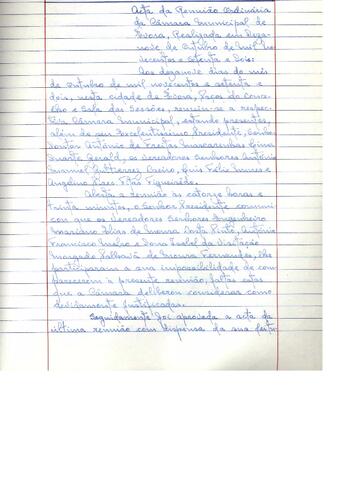 Acta da Reunião Ordinária
da Câmara Municipal de
Évora, Realizada em Deza-
nove de Outubro de Mil No-
vecentos e Setenta e Dois:
Aos dezanove dias do mês
de Outubro de mil novecentos e setenta e
dois, nesta cidade de Évora, Paços do Conce-
lho e Sala das Sessões, reuniu-se a respec-
tiva Câmara Municipal, estando presentes,
além do seu Excelentíssimo Presidente, Senhor
Doutor António de Freitas Mascarenhas
Duarte Geraldo, os Vereadores Senhores António
Manuel Gutterres Caeiro, Luís Félix Nunes e
Angelino Pires Figueiredo.
Aberta a reunião às catorze horas e
trinta minutos, o Senhor Presidente comuni-
cou que os Vereadores Senhores Engenheiro
Mariano Elias de Pinto, António
Francisco e Dona Isabel da Visitação
Morgado de Moura Fernandes, lhe
participaram a sua impossibilidade de com-
parecerem à presente reunião, faltas estas
que a Câmara deliberou considerar como
devidamente justificadas.
Seguidamente foi aprovada a acta da
última reunião com dispensa da sua leitu-